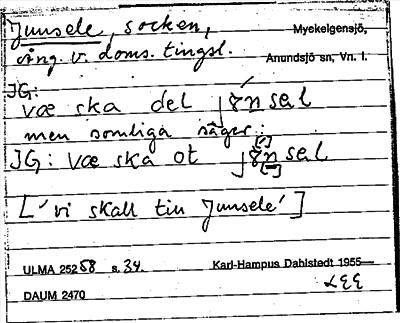 Junsele, socken, Myckelgensjö,
ång. v. doms. tingsl. Anundsjö sn, Vn. l.
JG:
væ ska del jɤ́n sel
men somliga säger:
JG: væ ska ot jɤn sel
[´vi skall till Junsele´]
ULMA 25258 s. 34. Karl-Hampus Dahlstedt 1955—
DAUM 2470